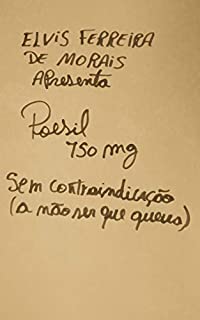 ELVIS FERREIRA
DE MORAIS
Apresenta
Poesil
750 mg
Sem contraindicação
(a não ser que queira)